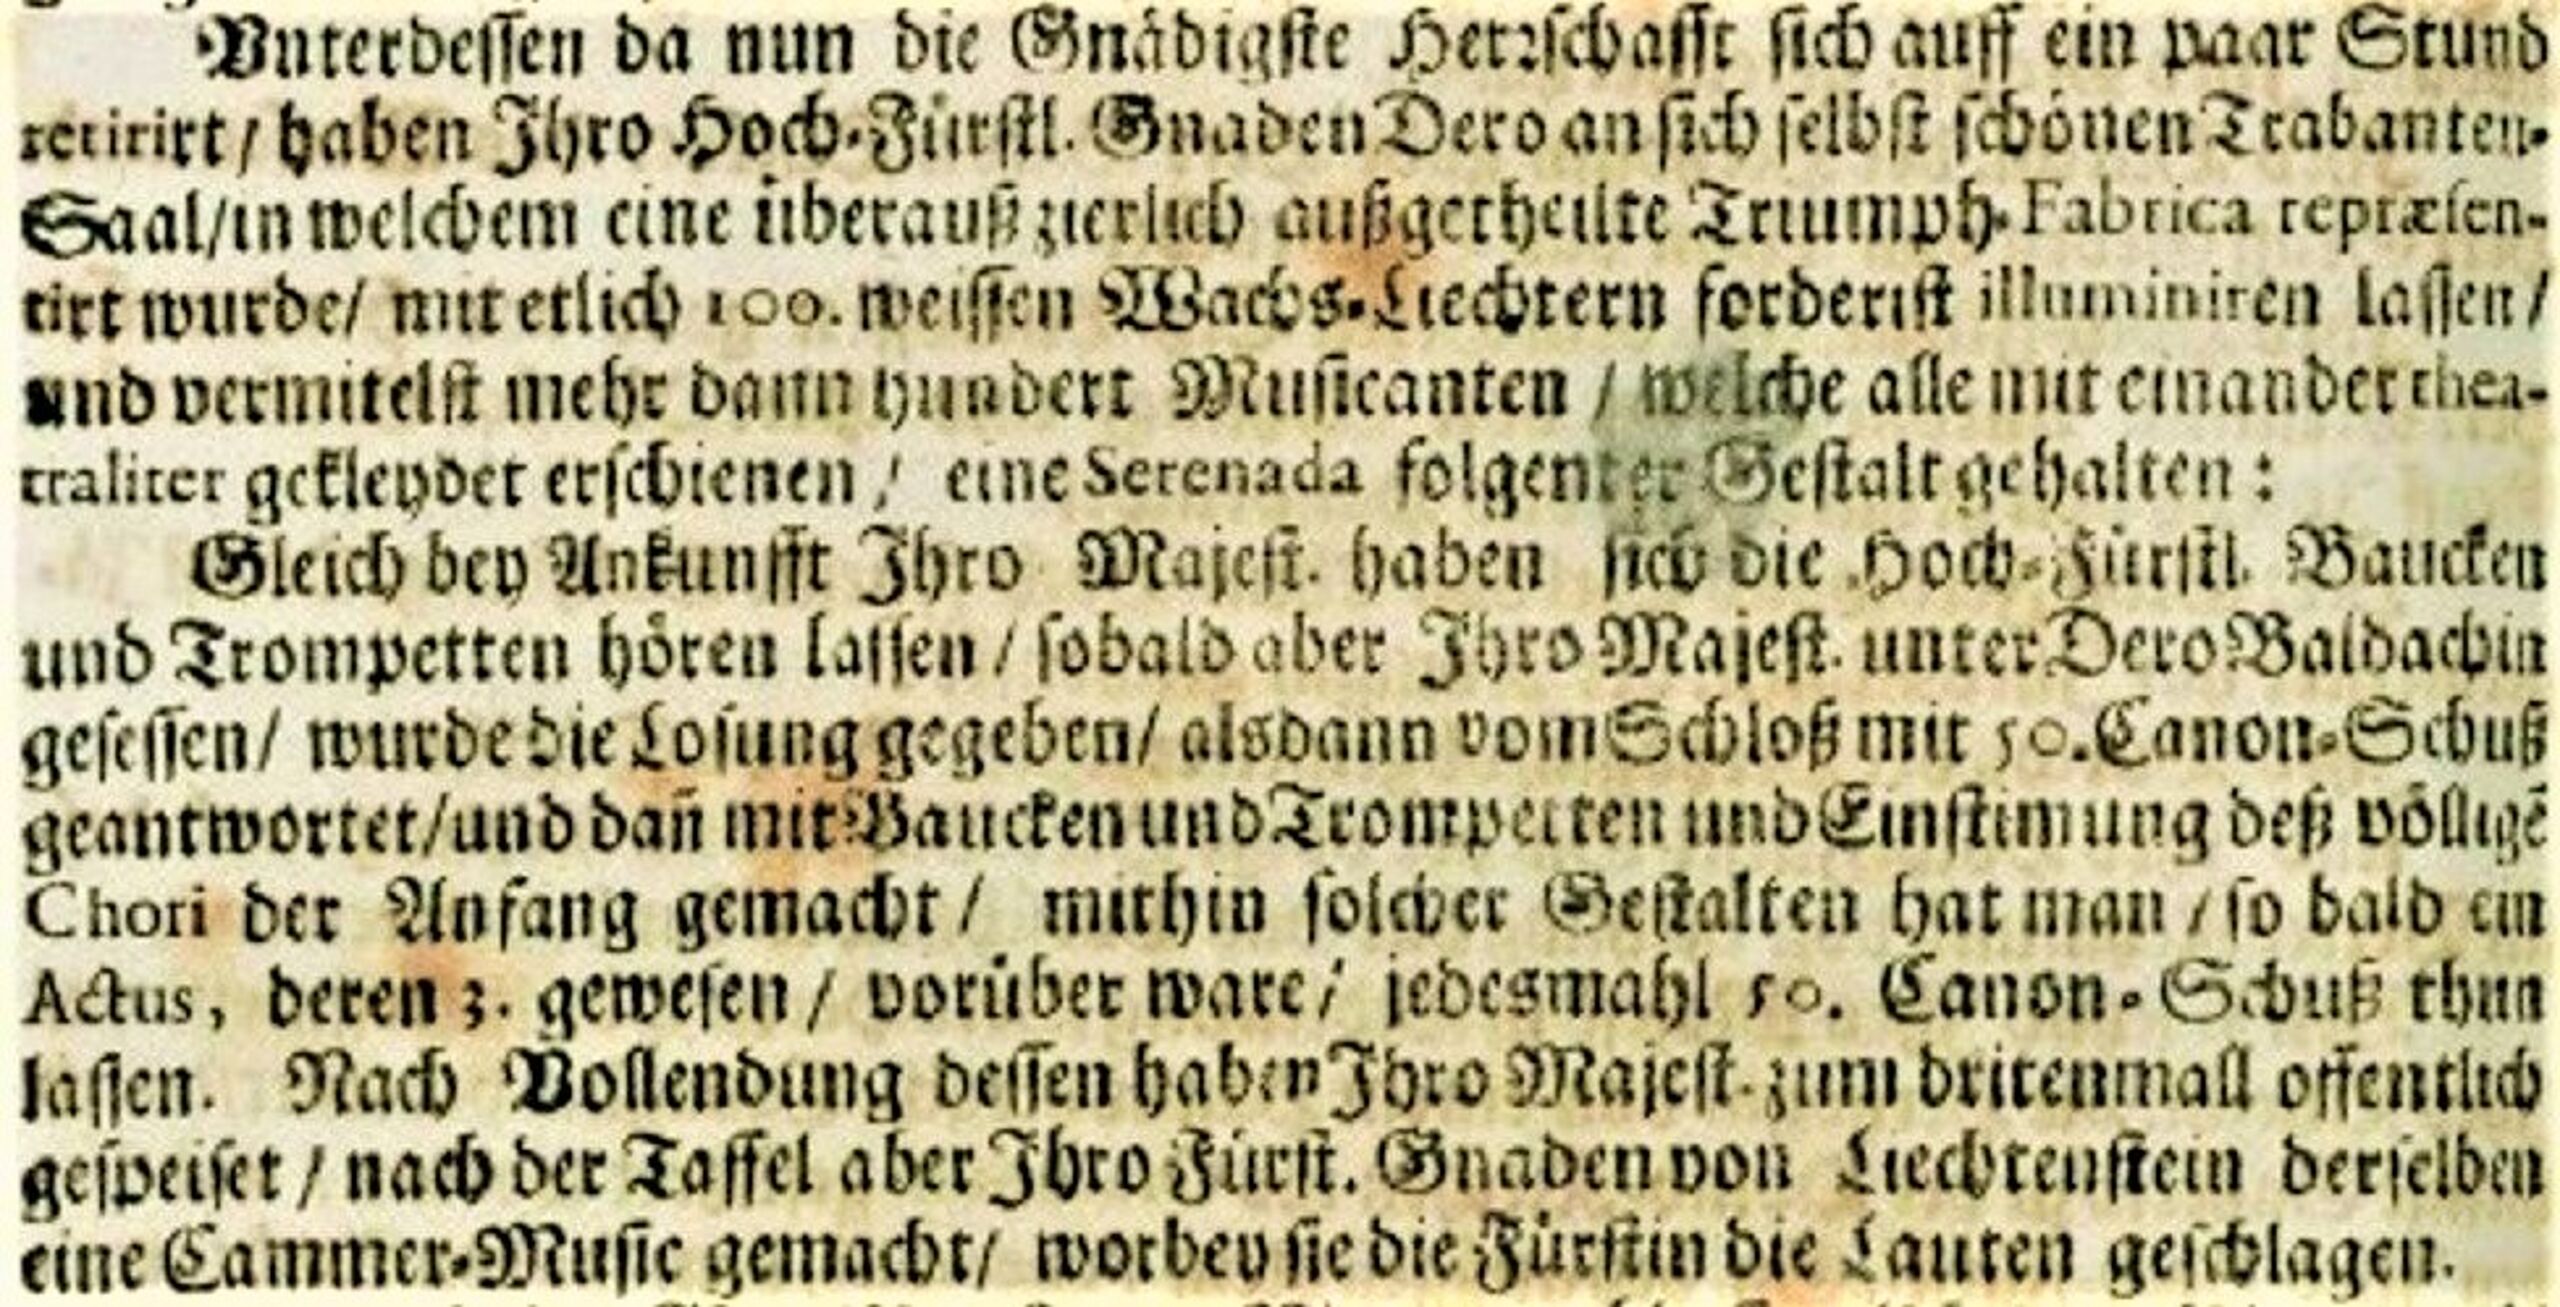 Vnterdessen da nun die Gnädigste Herrschafft sich auff ein paar Stund
retirirt / haben Ihro Hoch-Fürstl. Gnaden Dero an sich selbst schönen Trabanten-
Saal/in welchem eine überauß zierlich außgetheilte Triumph-Fabrica repræsen-
tirt wurde/ mit etlich 100. weissen Wachs-Liechtern forderist illuminiren lassen /
und vermitelst mehr dann hundert Musicanten / welche alle mit einander thea-
traliter gekleydet erschienen / eine Serenada folgenter Gestalt gehalten :
Gleich bey Ankunfft Ihro Majest. haben sich die Hoch-Fürstl. Baucken
und Trompetten hören lassen / sobald aber Ihro Majest. unter Dero Baldachin
gesessen/ wurde die Losung gegeben/ alsdann vom Schloß mit 50. Canon-Schuß
geantwortet/und dañ mit Baucken und Trompetten und Einstimung deß völligẽ
Chori der Anfang gemacht / mithin solcher Gestalten hat man / so bald ein
Actus, deren 3. gewesen / vorüber ware / jedesmahl 50. Canon-Schuß thun
lassen. Nach Vollendung dessen haben Ihro Majest. zum dritenmall offentlich
gespeiset / nach der Taffel aber Ihro Fürst. Gnaden von Liechtenstein derselben
eine Cammer-Music gemacht/ worbey sie die Fürstin die Lauten geschlagen.